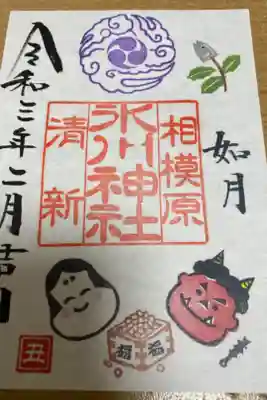 如月
相模原
氷川神社
清新
令和三年二月吉日
福
丑